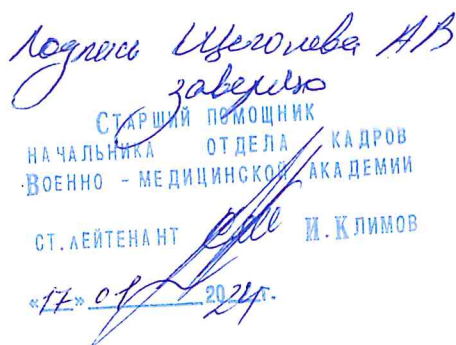 Подпись Щеголева АВ
заверяю
СТАРШИЙ ПОМОЩНИК
НАЧАЛЬНИКА ОТДЕЛА КАДРОВ
ВОЕННО - МЕДИЦИНСКОЙ АКАДЕМИИ
СТ. ЛЕЙТЕНАНТ И. КЛИМОВ
«17» 01 2024г.